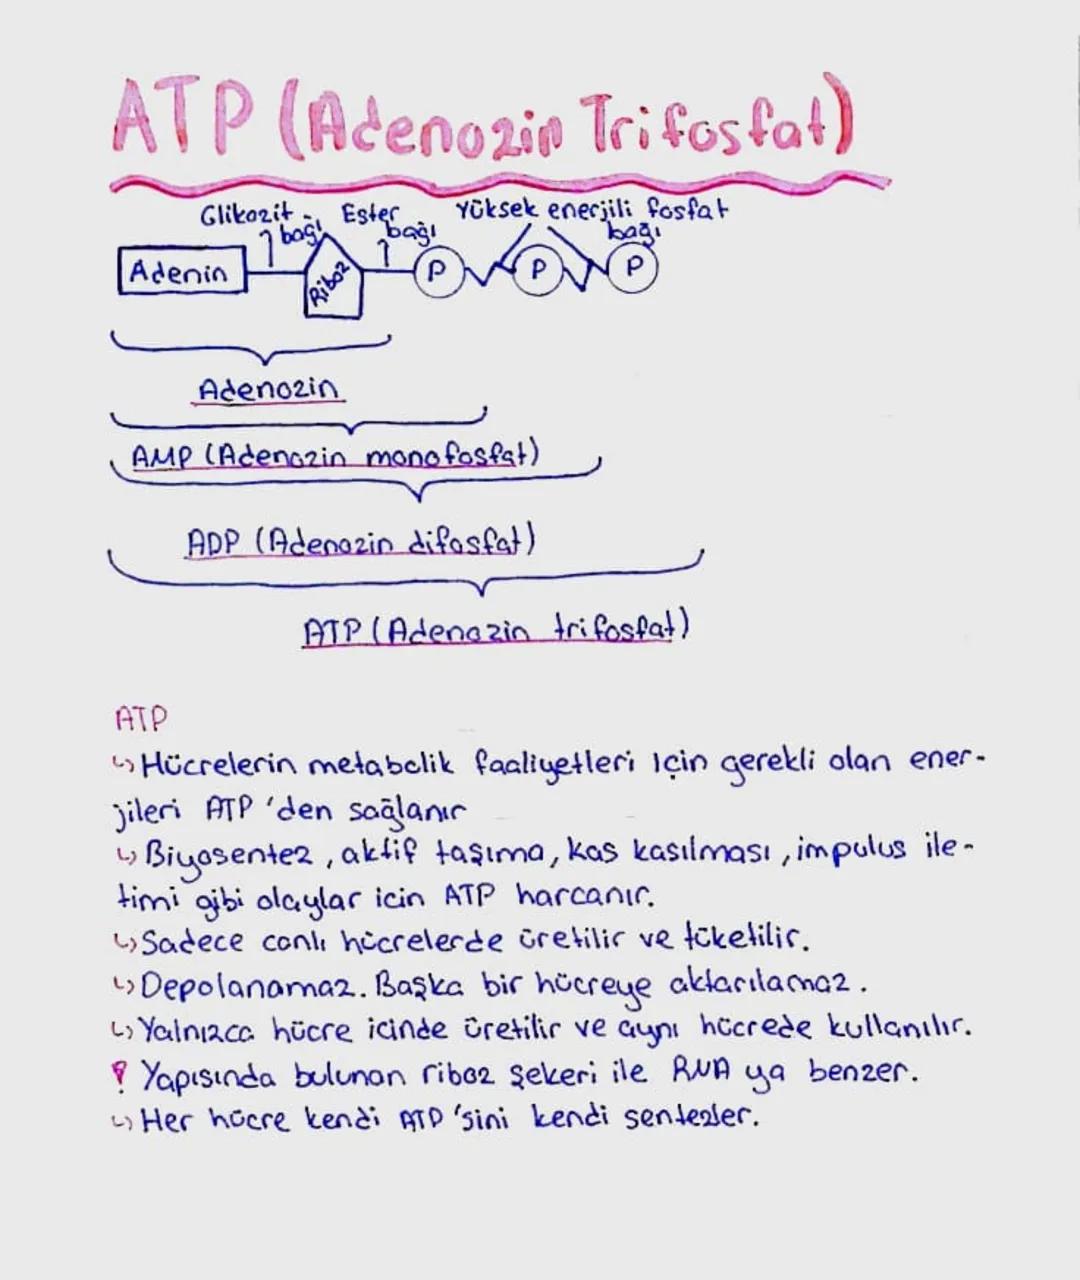 ATP (Adenozin Trifosfat)
Glikozit bağı Ester bağı Yüksek enerjili fosfat bağı
Adenin Riboz P P P
Adenozin
AMP (Adenozin monofosfat)
ADP (Adenozin difosfat)
ATP (Adenozin trifosfat)
ATP
↳ Hücrelerin metabolik faaliyetleri için gerekli olan ener-
jileri ATP 'den sağlanır
↳ Biyosentez, aktif taşıma, kas kasılması, impulus ile-
timi gibi olaylar icin ATP harcanır.
↳ Sadece canlı hücrelerde üretilir ve tüketilir.
↳ Depolanamaz. Başka bir hücreye aktarılamaz.
↳ Yalnızca hücre icinde üretilir ve aynı hücrede kullanılır.
! Yapısında bulunan riboz şekeri ile RNA ya benzer.
↳ Her hücre kendi ATP 'sini kendi sentezler.